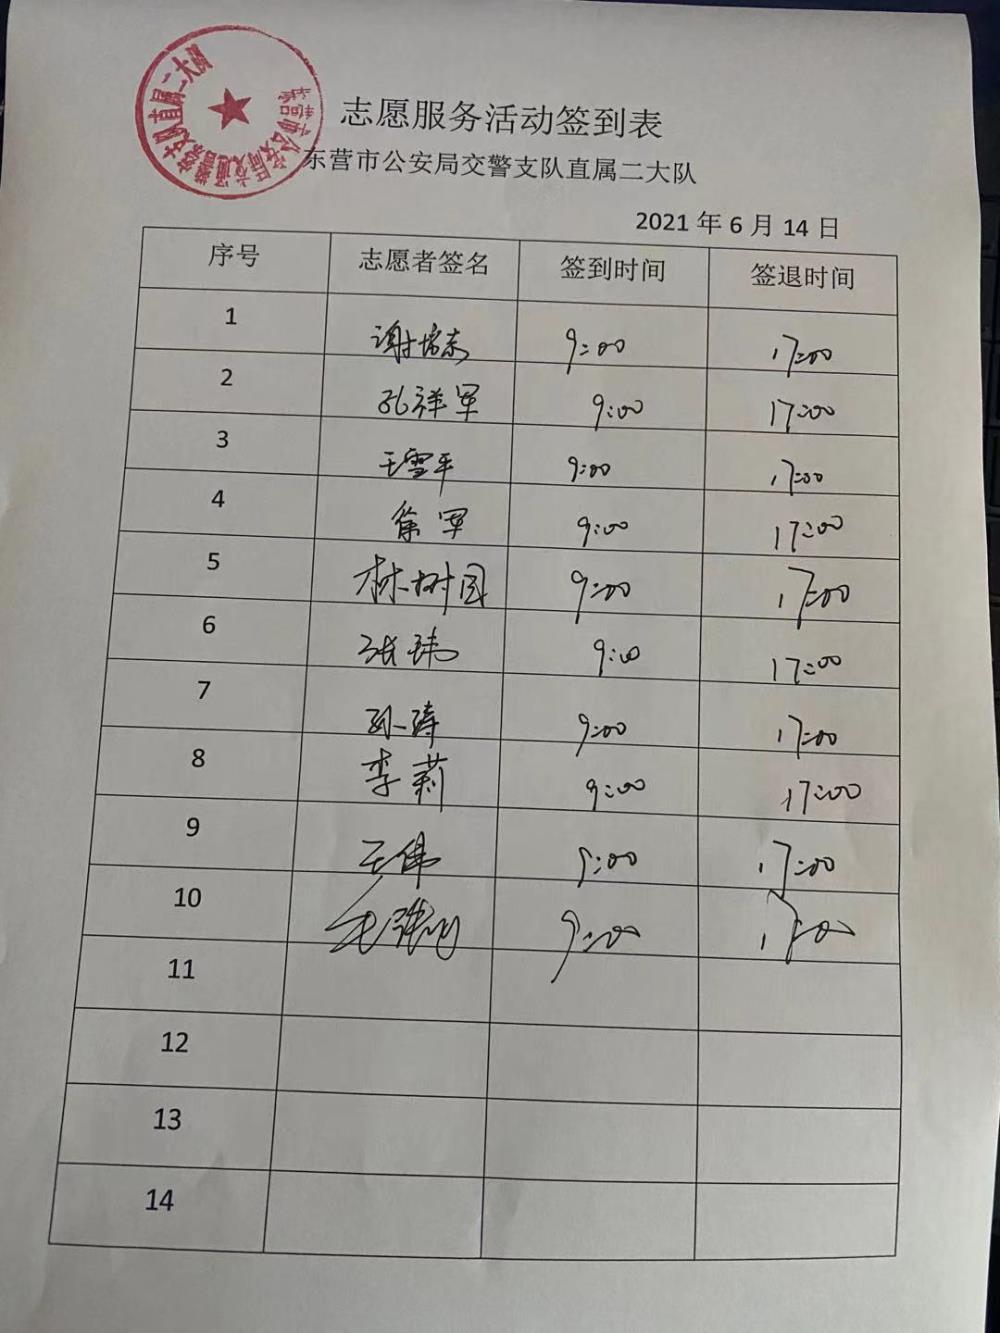 志愿服务活动签到表
东营市公安局交警支队直属二大队
东营市公安局交通警察支队直属二大队
2021 年 6 月 14 日
序号 志愿者签名 签到时间 签退时间
1 谢培东 9:00 17:00
2 孔祥军 9:00 17:00
3 王雪平 9:00 17:00
4 徐军 9:00 17:00
5 林树国 9:00 17:00
6 张玮 9:00 17:00
7 孙涛 9:00 17:00
8 李莉 9:00 17:00
9 王伟 9:00 17:00
10 9:00 17:00
11
12
13
14